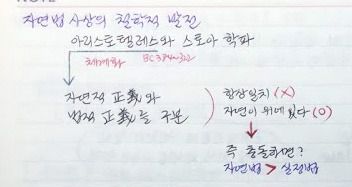 자연법 사상의 철학적 발전
아리스토텔레스와 스토아 학파
체계화
BC 384~322
자연적 正義와
법적 正義를 구분
항상일치 (X)
자연이 위에 있다 (O)
즉 충돌하면?
자연법 > 실정법